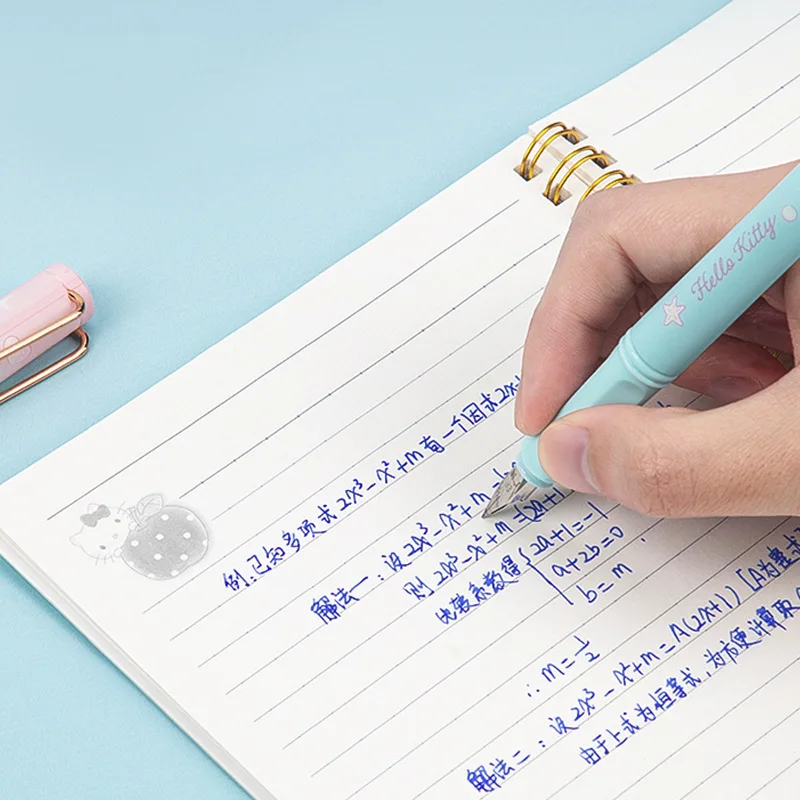 Hello Kitty
例:已知多项式2x³-x²+m有一个因式2x+
解法一:设2x³-x²+m=
则2x³-x²+m=(2a+1
比较系数得{2a+1=-1
a+2b=0
b=m
∴m=1/2
解法二:设2x³-x²+m=A(2x+1)[A为整式
由于上式为恒等式,为方便计算取